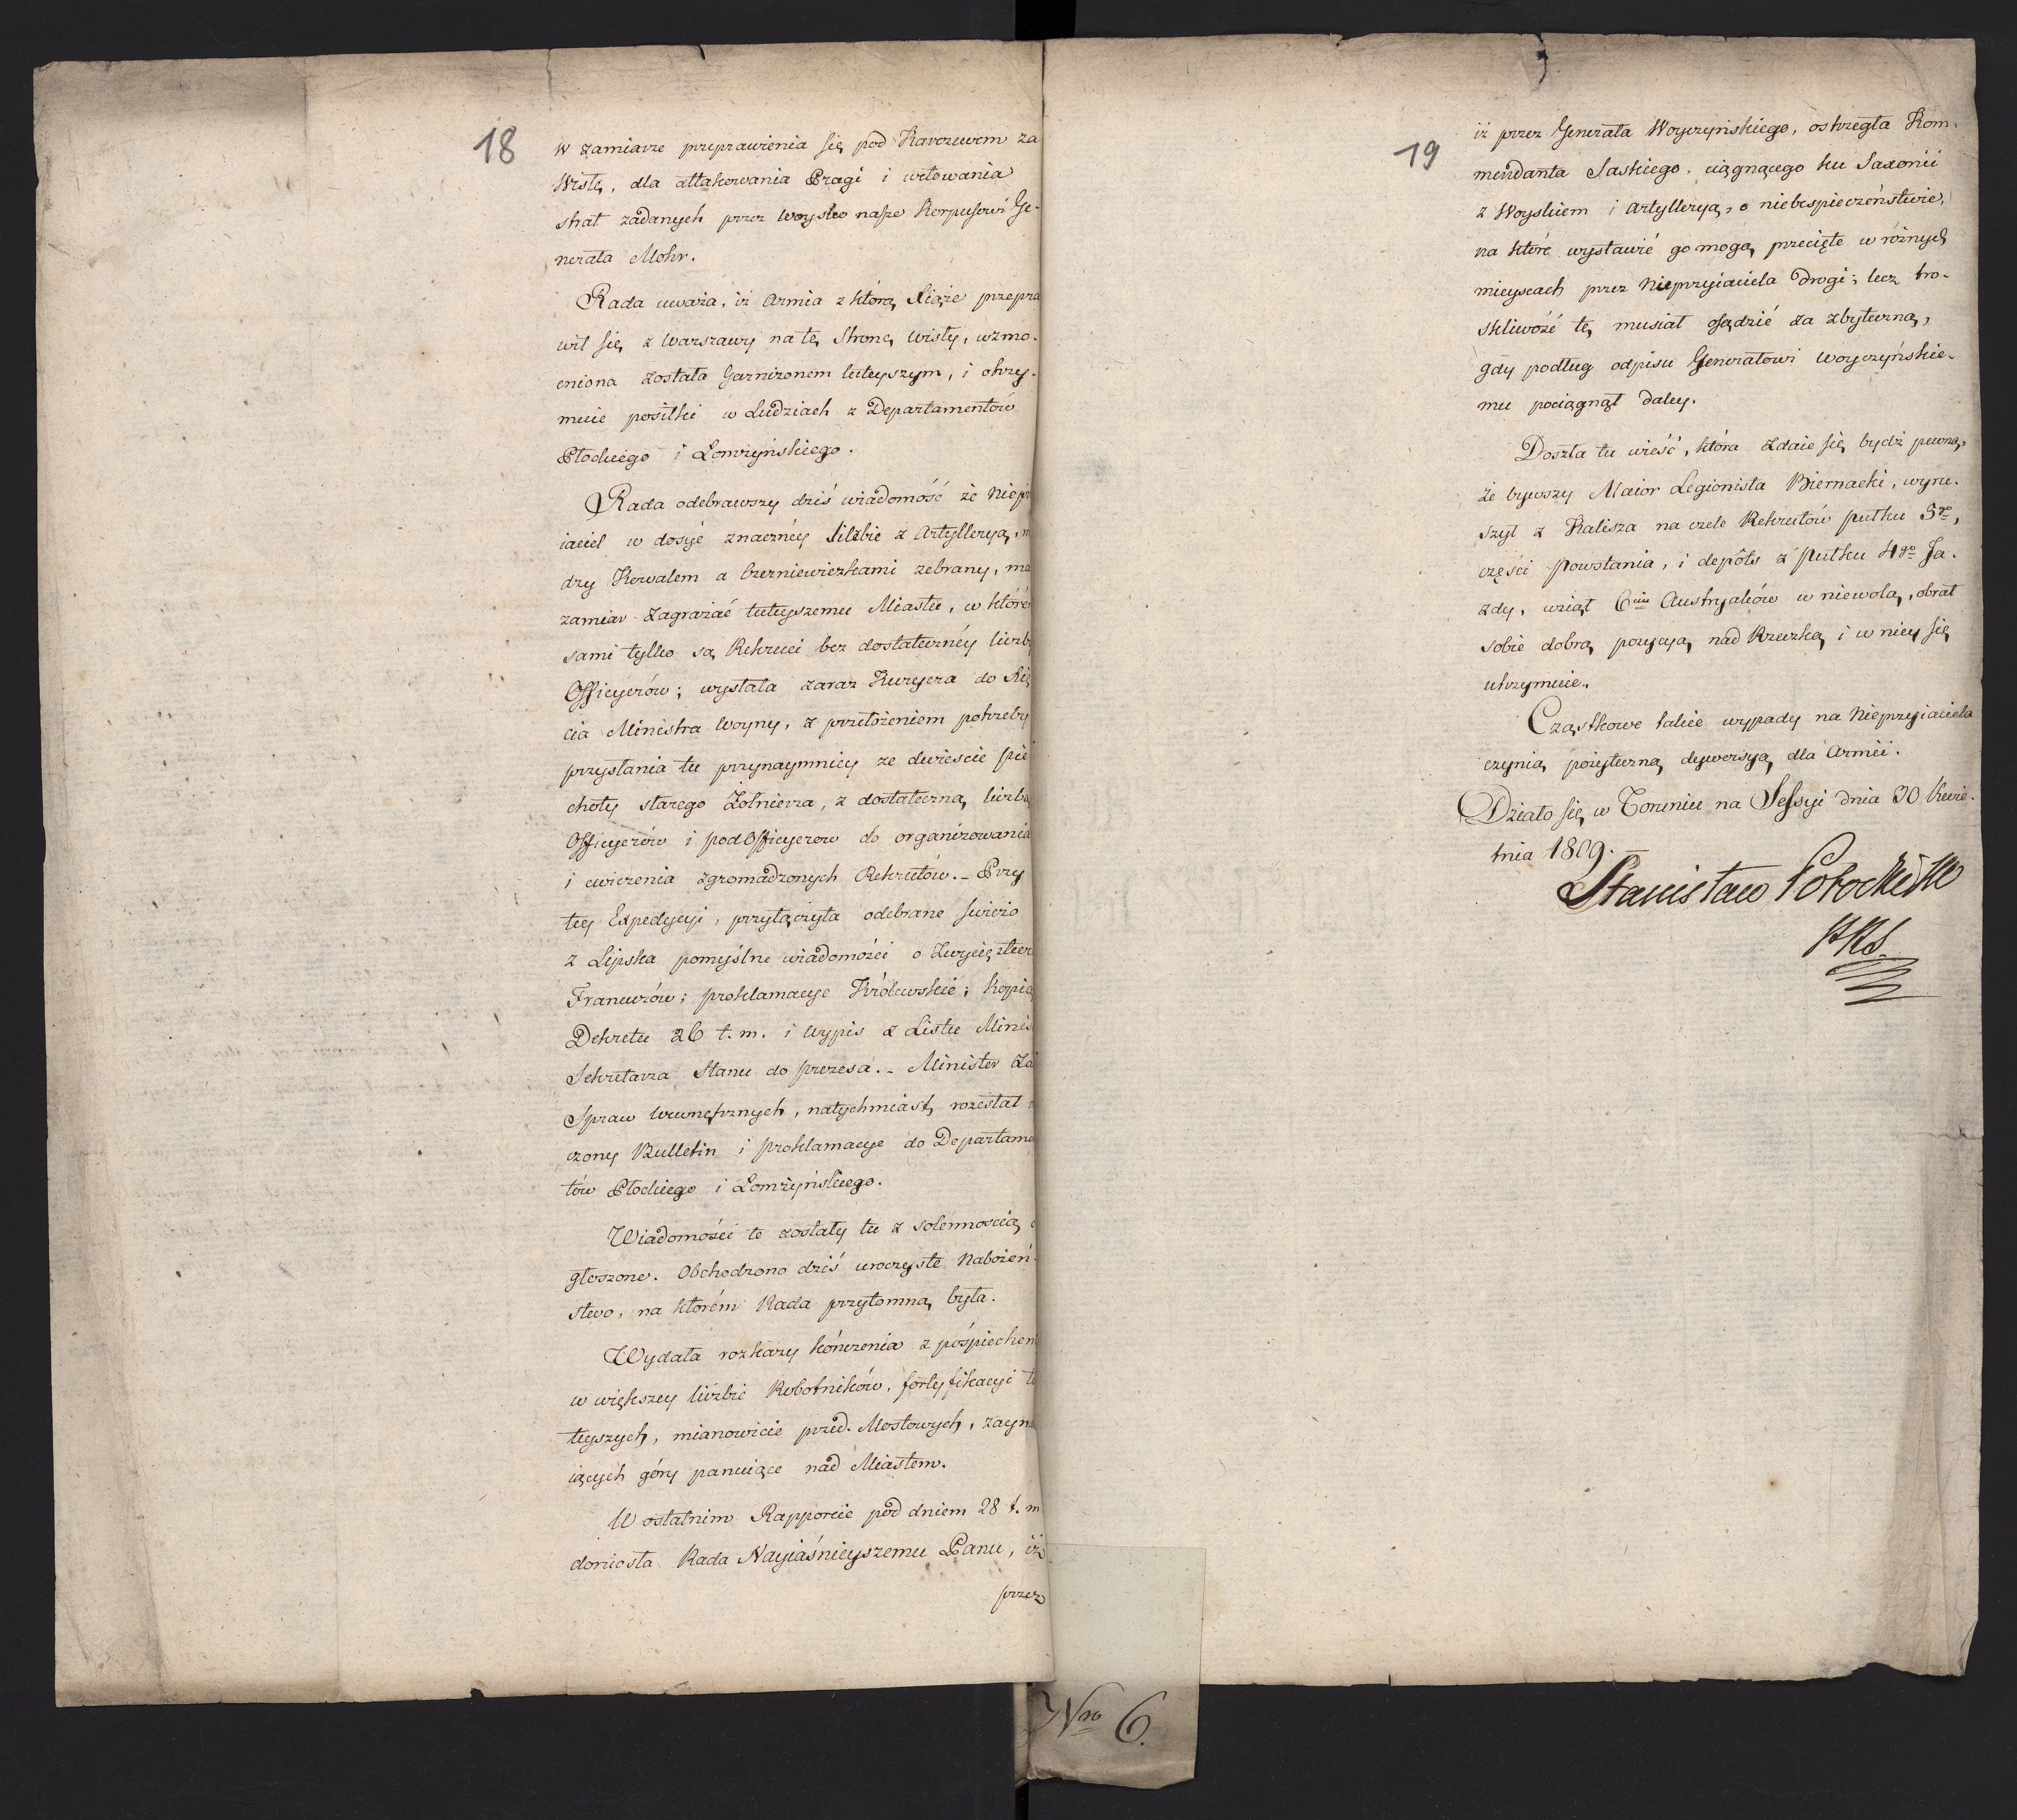 18
w zamiarze przeprawienia się pod Karczewem za
Wisłę, dla attakowania Pragi i wetowania
strat zadanych przez woysko nasze Korpusowi Ge-
nerała Mohr.
Rada uważa, iż Armia z którą Xiąże przepra
wił się z Warszawy na tę stronę Wisły, wzmo-
cniona została Garnizonem tuteyszym, i otrzy-
muie posiłki w Ludziach z Departamentów
Płockiego i Łomżyńskiego.
Rada odebrawszy dziś wiadomość że Niep
iaciel w dosyć znaczney liczbie z Artylleryą, m
dzy Kowalem a Czerniewiczkami zebrany, ma
zamiar zagrażać tuteyszemu Miastu, w które
sami tylko są Rekruci bez dostateczney liczb
Officyerów; wysłała zaraz Kuryera do Xią
cia Ministra Woyny, z przełożeniem potrzeby
przysłania tu przynaymniey ze dwieście pie
choty starego Żołnierza, z dostateczną liczbą
Officyerów i podOfficyerow do organizowania
i cwiczenia zgromadzonych Rekrutów. - Przy
tey Expedycyi, przyłączyła odebrane swieżo
z Lipska pomyślne wiadomości o Zwycięztw
Francuzów; proklamacye Królewskie; kopią
Dekretu 26 t. m. i wypis z Listu Minis
Sekretarza Stanu do prezesa. - Minister Za
Spraw wewnętrznych, natychmiast rozesłał
czony Bulletin i proklamacye do Departame
tów Płockiego i Łomżyńskiego.
Wiadomości te zostały tu z solennością o
głoszone. Obchodzono dziś uroczyste Nabożeń-
stwo, na którém Rada przytomną była.
Wydała rozkazy kończenia z pośpiechem
w większey liczbie Robotników, fortyfikacyi tu
teyszych, mianowicie przed-Mostowych, zaym
iących góry panuiące nad Miastem.
W ostatnim Rapporcie pod dniem 28 t. m.
doniosła Rada Nayiaśnieyszemu Panu, iż
przez
19
iż przez Generała Woyczyńskiego, ostrzegła Kom-
mendanta Saskiego, ciągnącego ku Saxonii
z Woyskiem i Artylleryą, o niebespieczeństwie,
na które wystawić go mogą przecięte w różnych
mieyscach przez Nieprzyiaciela drogi; lecz tro-
skliwość tę musiał osądzić za zbyteczną,
gdy podług odpisu Generałowi Woyczyńskie-
mu pociągnął daley.
Doszła tu wieść, która zdaie się bydź pewną,
że bywszy Maior Legionista Biernacki, wyru-
szył z Kalisza na czele Rekrutów pułku 5go,
części powstania, i depôts z pułku 4go Ja-
zdy, wziął 6ciu Austryaków w niewolą, obrał
sobie dobrą pozycyą nad Rzeczką i w niey się
utrzymuie.
Cząstkowe takie wypady na Nieprzyiaciela
czynią pożyteczną dywersyą dla Armii.
Działo się w Toruniu na Sessyi dnia 30 Kwie-
tnia 1809.
Stanisław Potocki
PRS.
Nro 6.